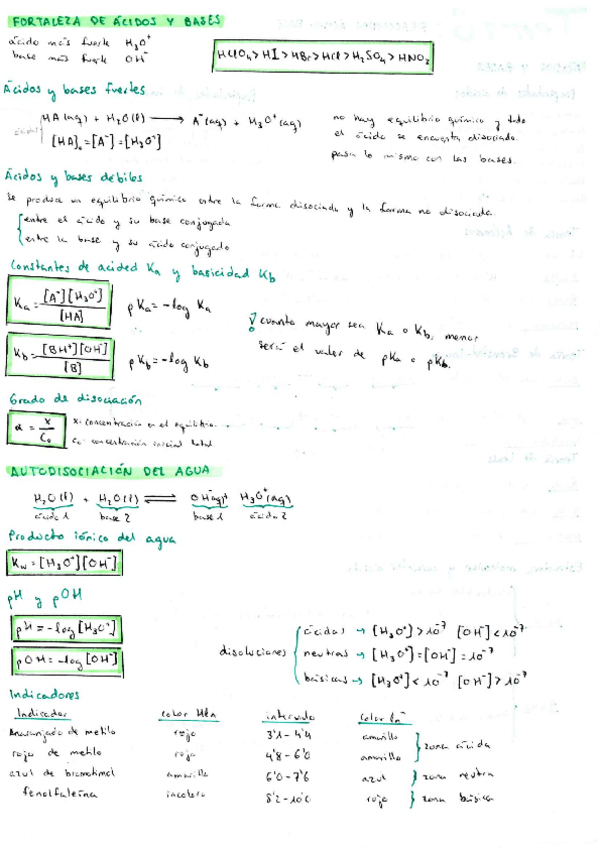 FORTALEZA DE ÁCIDOS Y BASES
ácido más fuerte H₃O⁺
base más fuerte OH⁻
HClO₄ > HI > HBr > HCl > H₂SO₄ > HNO₃
Ácidos y bases fuertes
HA(aq) + H₂O(l) ⟶ A⁻(aq) + H₃O⁺(aq)
[HA]₀ = [A⁻] = [H₃O⁺]
no hay equilibrio químico y todo
el ácido se encuentra disociado.
pasa lo mismo con las bases.
Ácidos y bases débiles
Se produce un equilibrio químico entre la forma disociada y la forma no disociada
entre el ácido y su base conjugada
entre la base y su ácido conjugado
Constantes de acided Ka y basicidad Kb
Ka = [A⁻][H₃O⁺] / [HA] pKa = -log Ka
Kb = [BH⁺][OH⁻] / [B] pKb = -log Kb
! cuanto mayor sea Ka o Kb, menor
será el valor de pKa o pKb.
Grado de disociación
α = x / C₀
x: concentración en el equilibrio.
c₀: concentración inicial total
AUTODISOCIACIÓN DEL AGUA
H₂O(l) + H₂O(l) ⇌ OH⁻(aq) + H₃O⁺(aq)
ácido 1 base 2 base 1 ácido 2
Producto iónico del agua
Kw = [H₃O⁺][OH⁻]
pH y pOH
pH = -log [H₃O⁺]
pOH = -log [OH⁻]
disoluciones
ácidas → [H₃O⁺] > 10⁻⁷ [OH⁻] < 10⁻⁷
neutras → [H₃O⁺] = [OH⁻] = 10⁻⁷
básicas → [H₃O⁺] < 10⁻⁷ [OH⁻] > 10⁻⁷
Indicadores
Indicador color HIn intervalo color In⁻
Anaranjado de metilo rojo 3'1 - 4'4 amarillo
rojo de metilo rojo 4'8 - 6'0 amarillo
zona ácida
azul de bromotimol amarillo 6'0 - 7'6 azul zona neutra
fenolftaleína incoloro 8'2 - 10'0 rojo zona básica